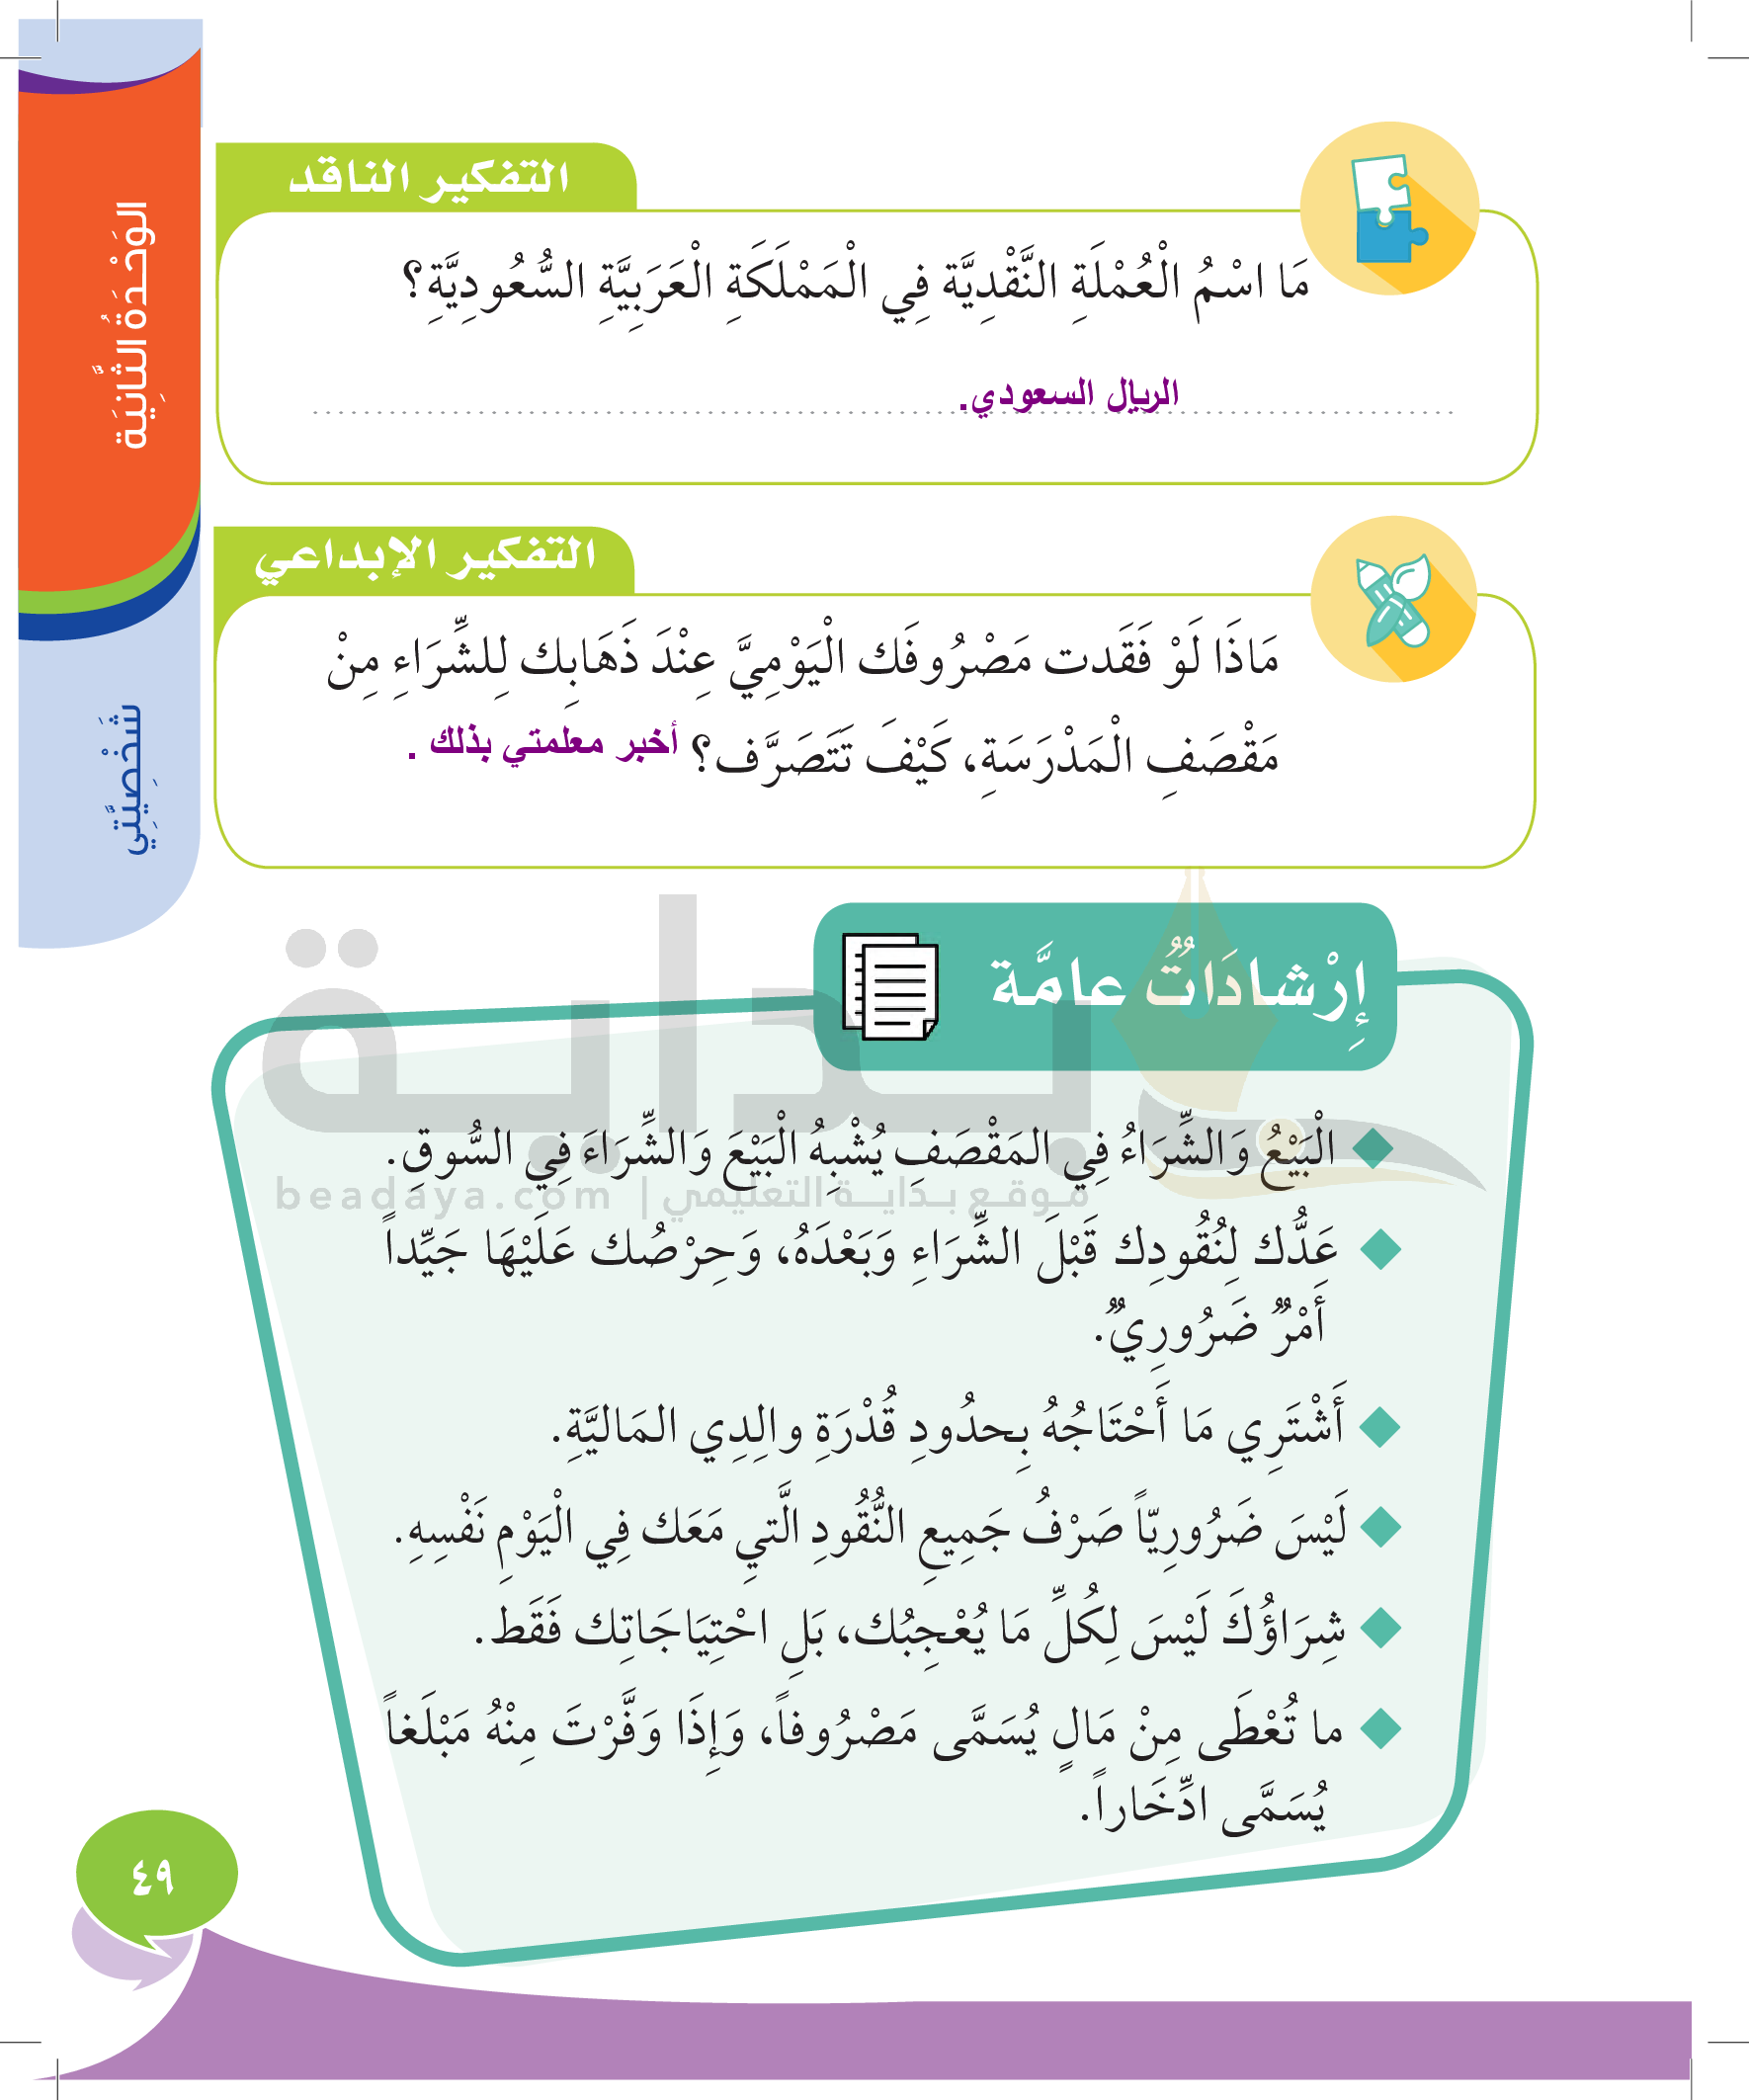 الوَحْدَةُ الثَّانِيَة
شَخْصِيَّتِي
التفكير الناقد
مَا اسْمُ الْعُمْلَةِ النَّقْدِيَّة فِي الْمَمْلَكَةِ الْعَرَبِيَّةِ السُّعُودِيَّةِ؟
الريال السعودي.
التفكير الإبداعي
مَاذَا لَوْ فَقَدت مَصْرُوفَك الْيَوْمِيَّ عِنْدَ ذَهَابِك لِلشِّرَاءِ مِنْ
مَقْصَفِ الْمَدْرَسَةِ، كَيْفَ تَتَصَرَّف؟ أخبر معلمتي بذلك .
إِرْشادَاتٌ عامَّة
بداية
الْبَيْعُ وَالشِّرَاءُ فِي المَقْصَفِ يُشْبِهُ الْبَيْعَ وَالشِّرَاءَ فِي السُّوقِ.
موقع بداية التعليمي | beadaya.com
عَدُّك لِنُقُودِك قَبْلَ الشِّرَاءِ وَبَعْدَهُ، وَحِرْصُك عَلَيْهَا جَيِّداً
أَمْرٌ ضَرُورِيٌّ.
أَشْتَرِي مَا أَحْتَاجُهُ بِحدُودِ قُدْرَةِ والِدِي المَاليَّةِ.
لَيْسَ ضَرُورِيّاً صَرْفُ جَمِيعِ النُّقُودِ الَّتي مَعَك فِي الْيَوْمِ نَفْسِهِ.
شِرَاؤُكَ لَيْسَ لِكُلِّ مَا يُعْجِبُك، بَلِ احْتِيَاجَاتِك فَقَط.
ما تُعْطَى مِنْ مَالٍ يُسَمَّى مَصْرُوفاً، وَإِذَا وَفَّرْتَ مِنْهُ مَبْلَغاً
يُسَمَّى ادِّخَاراً.
٤٩